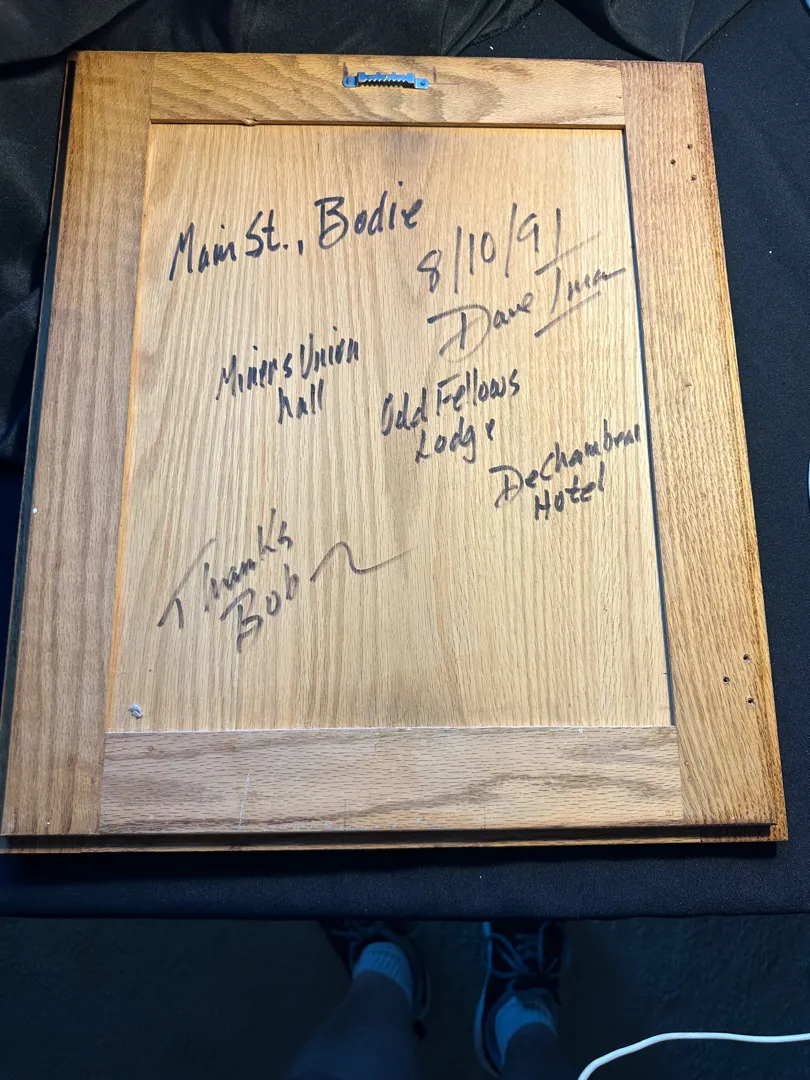 Main St., Bodie
8/10/91
Dave
Miners Union
Hall
Odd Fellows
Lodge
DeChambeau
Hotel
Thanks
Bob